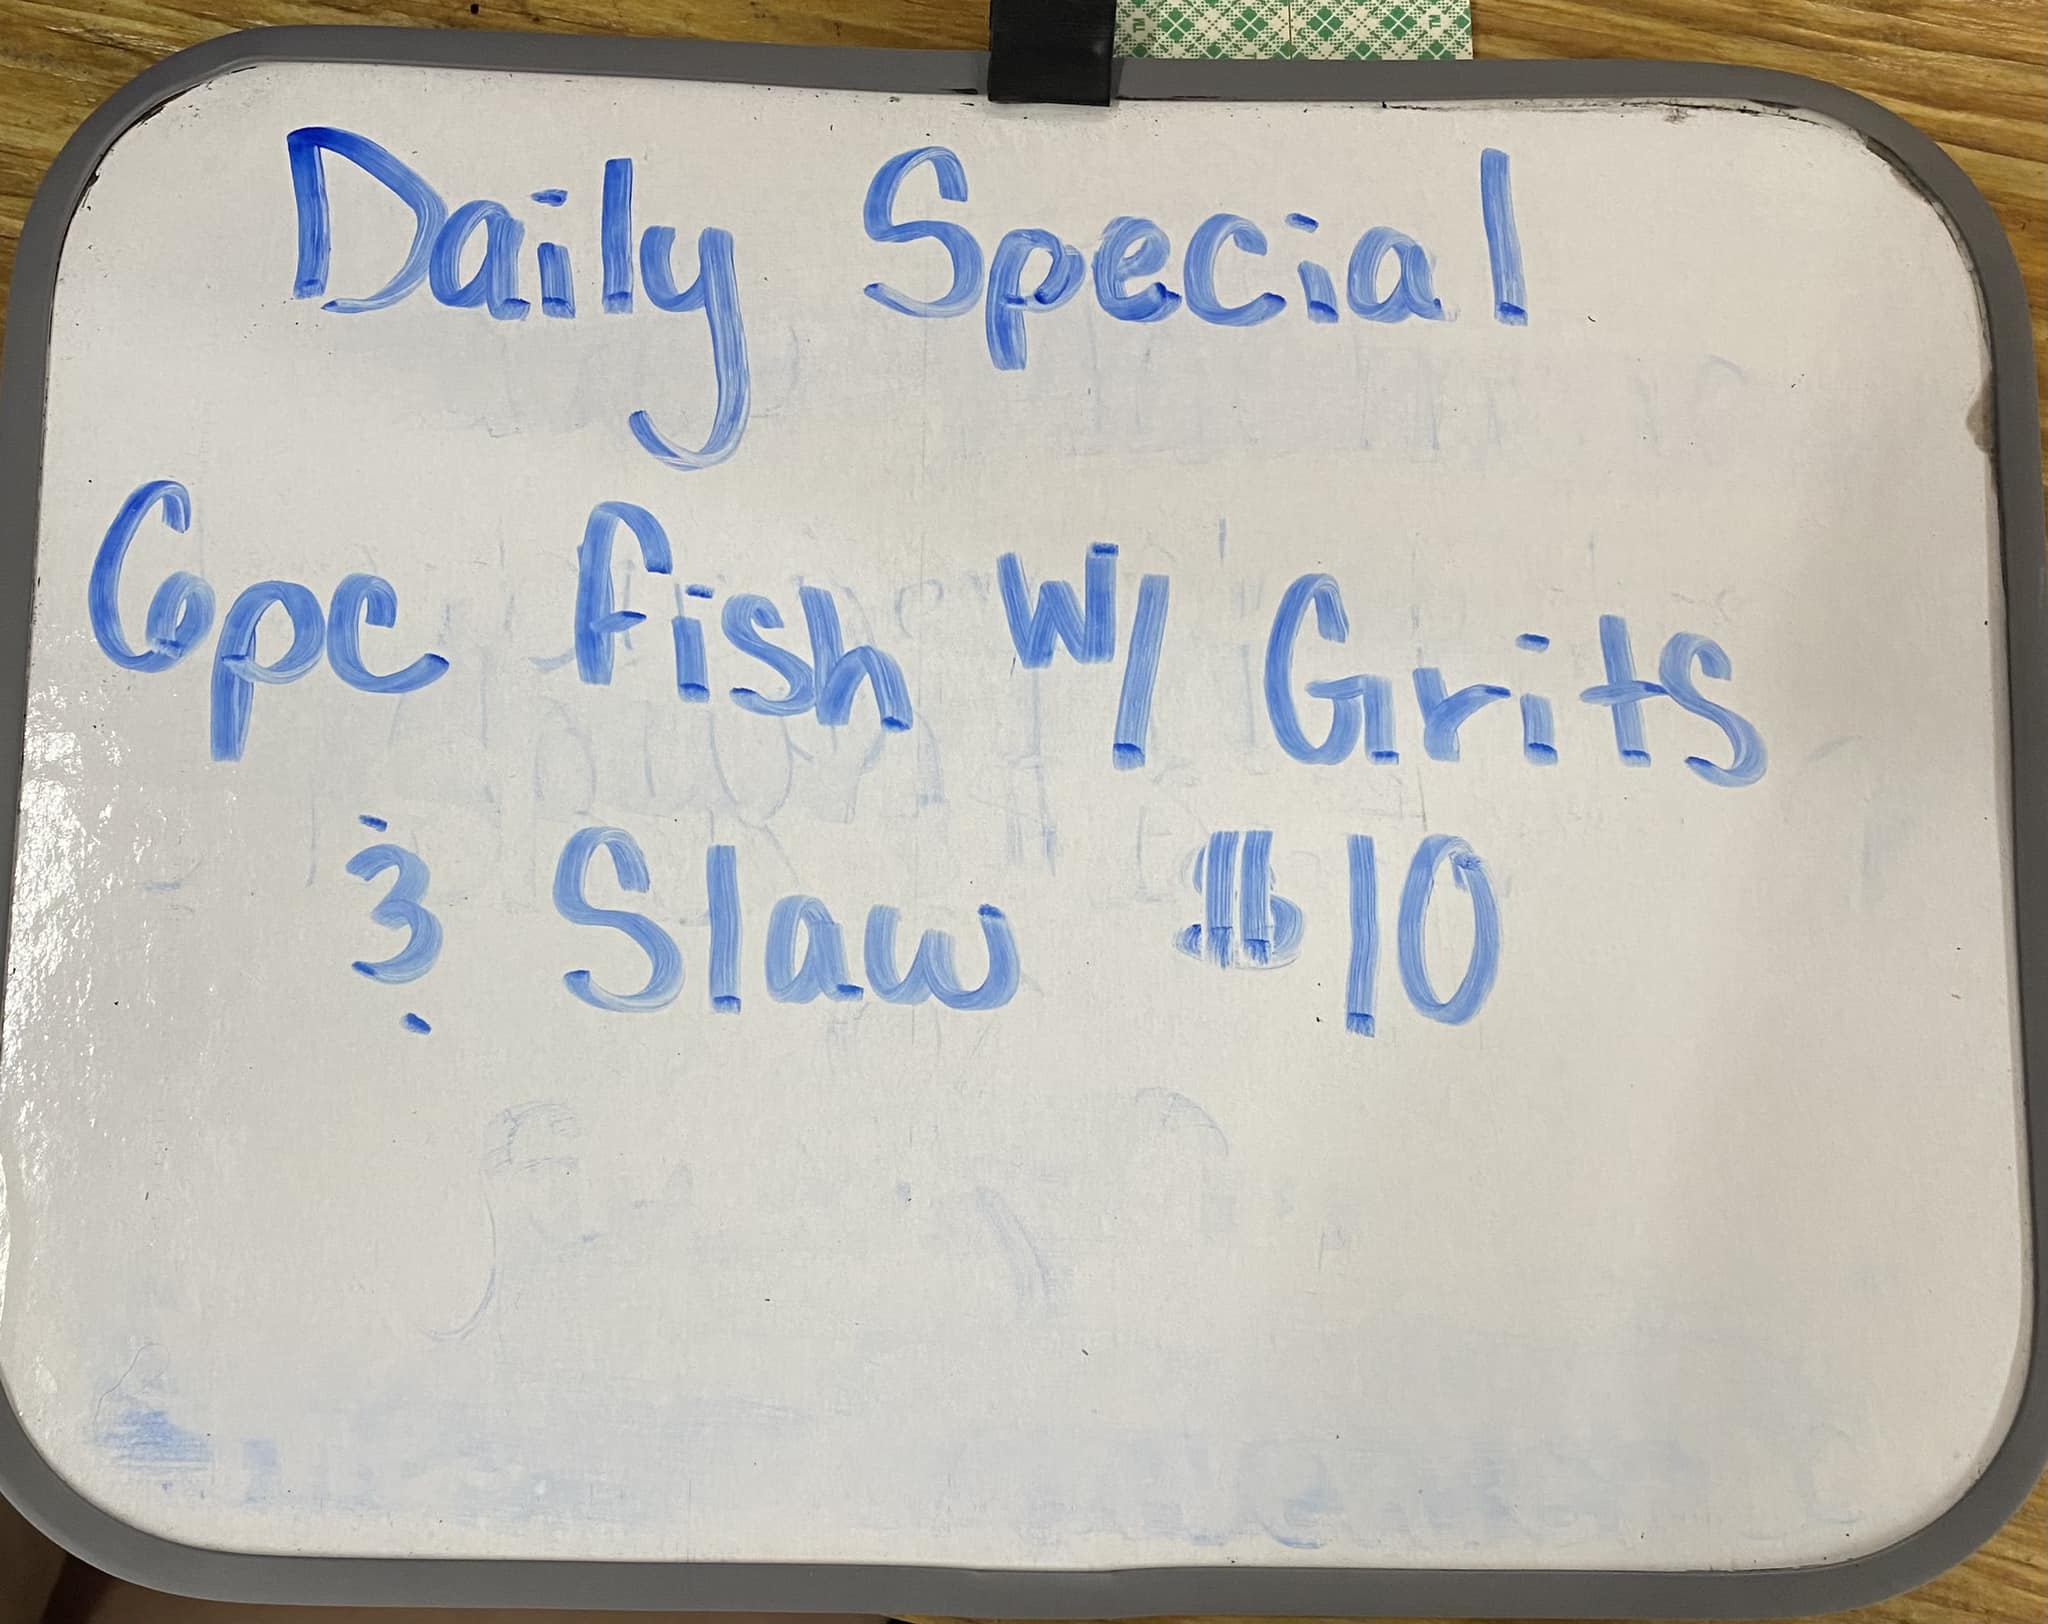 Daily Special
6pc fish w/ Grits
& Slaw $10